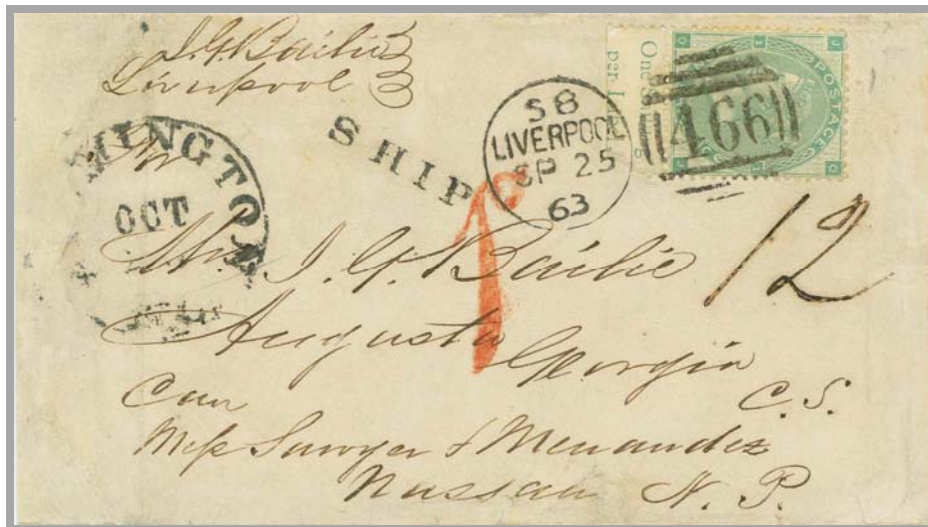 J. G. Bailie
Liverpool
MINGTON
OCT
SHIP
58
LIVERPOOL
SP 25
63
466
POSTAGE
One
per
1
12
J. G. Bailie
Augusta
Georgia
C. S.
Care
Mess Sawyer & Menandez
Nassau N. P.